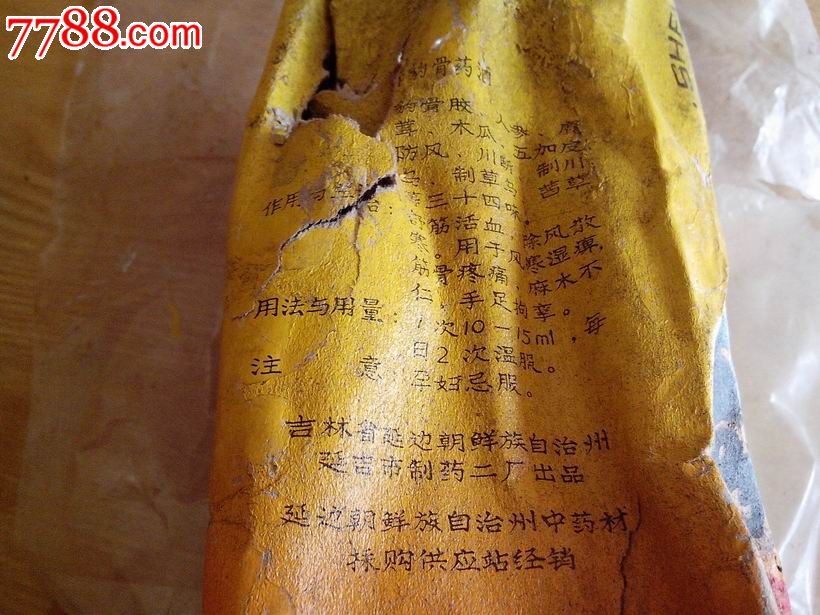 7788.com
SHE
骨药酒
骨胶、人参、鹿
茸、木瓜、五加皮
防风、川断、制川
乌、制草乌、苕草
等三十四味。
作用与主治:
筋活血,除风散
寒。用于风寒湿痹,
筋骨疼痛,麻木不
仁,手足拘挛。
用法与用量:1次10-15ml,每
日2次温服。
注 意:孕妇忌服。
吉林省延边朝鲜族自治州
延吉市制药二厂出品
延边朝鲜族自治州中药材
採购供应站经销